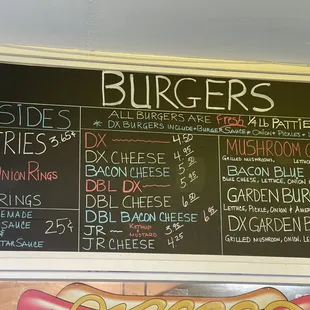 BURGERS
ALL BURGERS ARE Fresh ALL PATTIE
* DX BURGERS INCLUDE • BURGER SAUCE • ONION • PICKLES •
SIDES
FRIES 3.65
ONION RINGS
RINGS
EMADE
SAUCE 25¢
TAR SAUCE
DX 4.50
DX CHEESE 4.95
BACON CHEESE 5.
DBL DX 5.
DBL CHEESE 6.50
DBL BACON CHEESE 6.95
JR KETCHUP & MUSTARD 3.95
JR CHEESE 4.25
MUSHROOM
GRILLED MUSHROOMS, LETTUCE
BACON BLUE
BLUE CHEESE, LETTUCE, ONION
GARDEN BUR
LETTUCE, PICKLE, ONION & AMER
DX GARDEN B
GRILLED MUSHROOM, ONION, LE